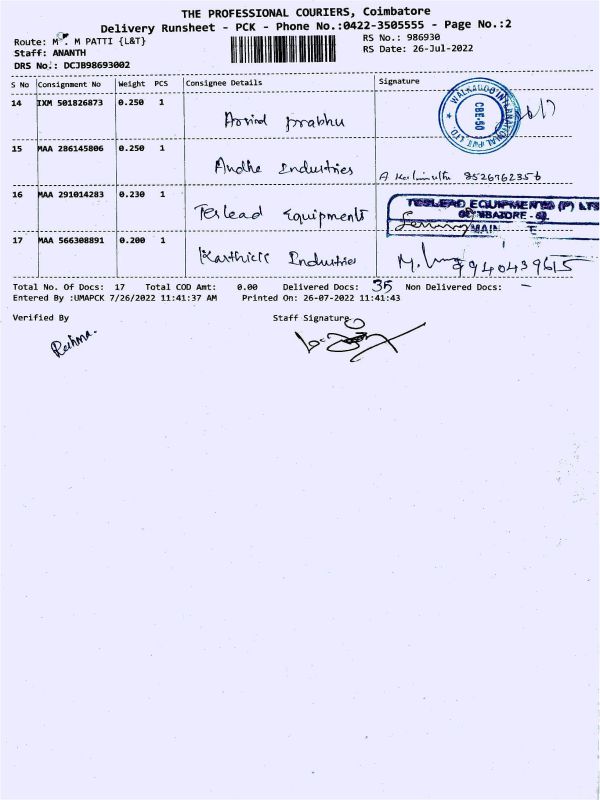 THE PROFESSIONAL COURIERS, Coimbatore
Delivery Runsheet - PCK - Phone No.:0422-3505555 - Page No.:2
Route: M. M PATTI {L&T}
RS No.: 986930
Staff: ANANTH
RS Date: 26-Jul-2022
DRS No.: DCJB98693002
S No Consignment No Weight PCS Consignee Details Signature
14 IXM 501826873 0.250 1 Arvind prabhu
WALKAROO INTERNATIONAL PVT LTD. CBE-50
15 MAA 286145806 0.250 1 Andhe Industries 8526762356
16 MAA 291014283 0.230 1 Teslead Equipments
TESLEAD EQUIPMENTS (P) LTD
COIMBATORE - 62.
MAIN
17 MAA 566308891 0.200 1 Karthick Industries M. 9940439615
Total No. Of Docs: 17 Total COD Amt: 0.00 Delivered Docs: 35 Non Delivered Docs: -
Entered By :UMAPCK 7/26/2022 11:41:37 AM Printed On: 26-07-2022 11:41:43
Verified By Staff Signature
Reshma.